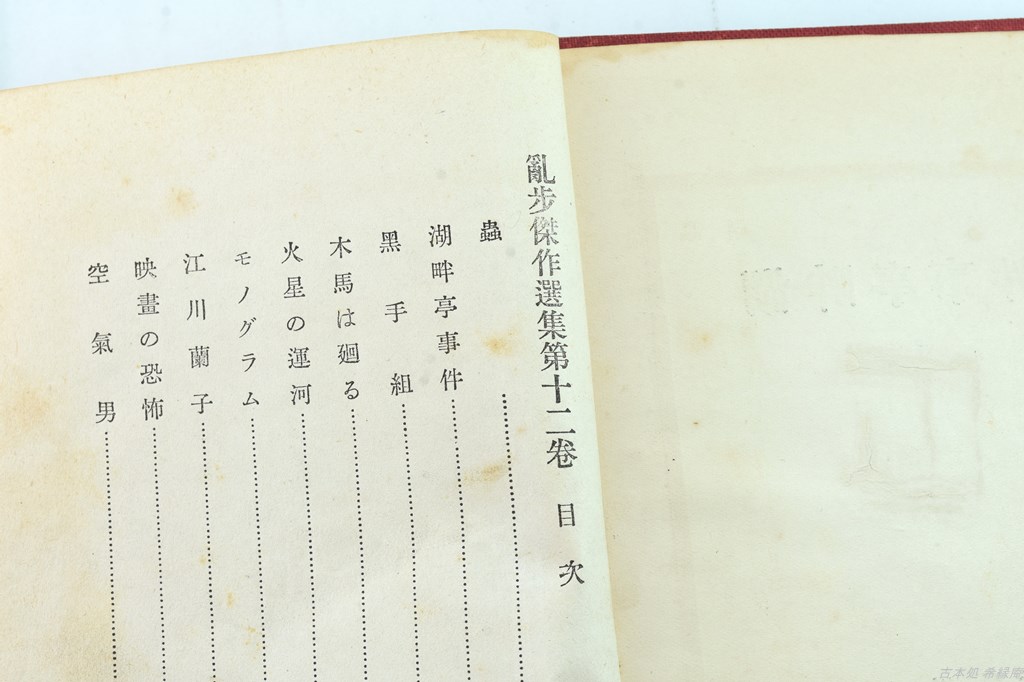 亂步傑作選集第十二卷 目次
蟲
湖畔亭事件
黑手組
木馬は廻る
火星の運河
モノグラム
江川蘭子
映畫の恐怖
空氣男
古本処 希縁庵